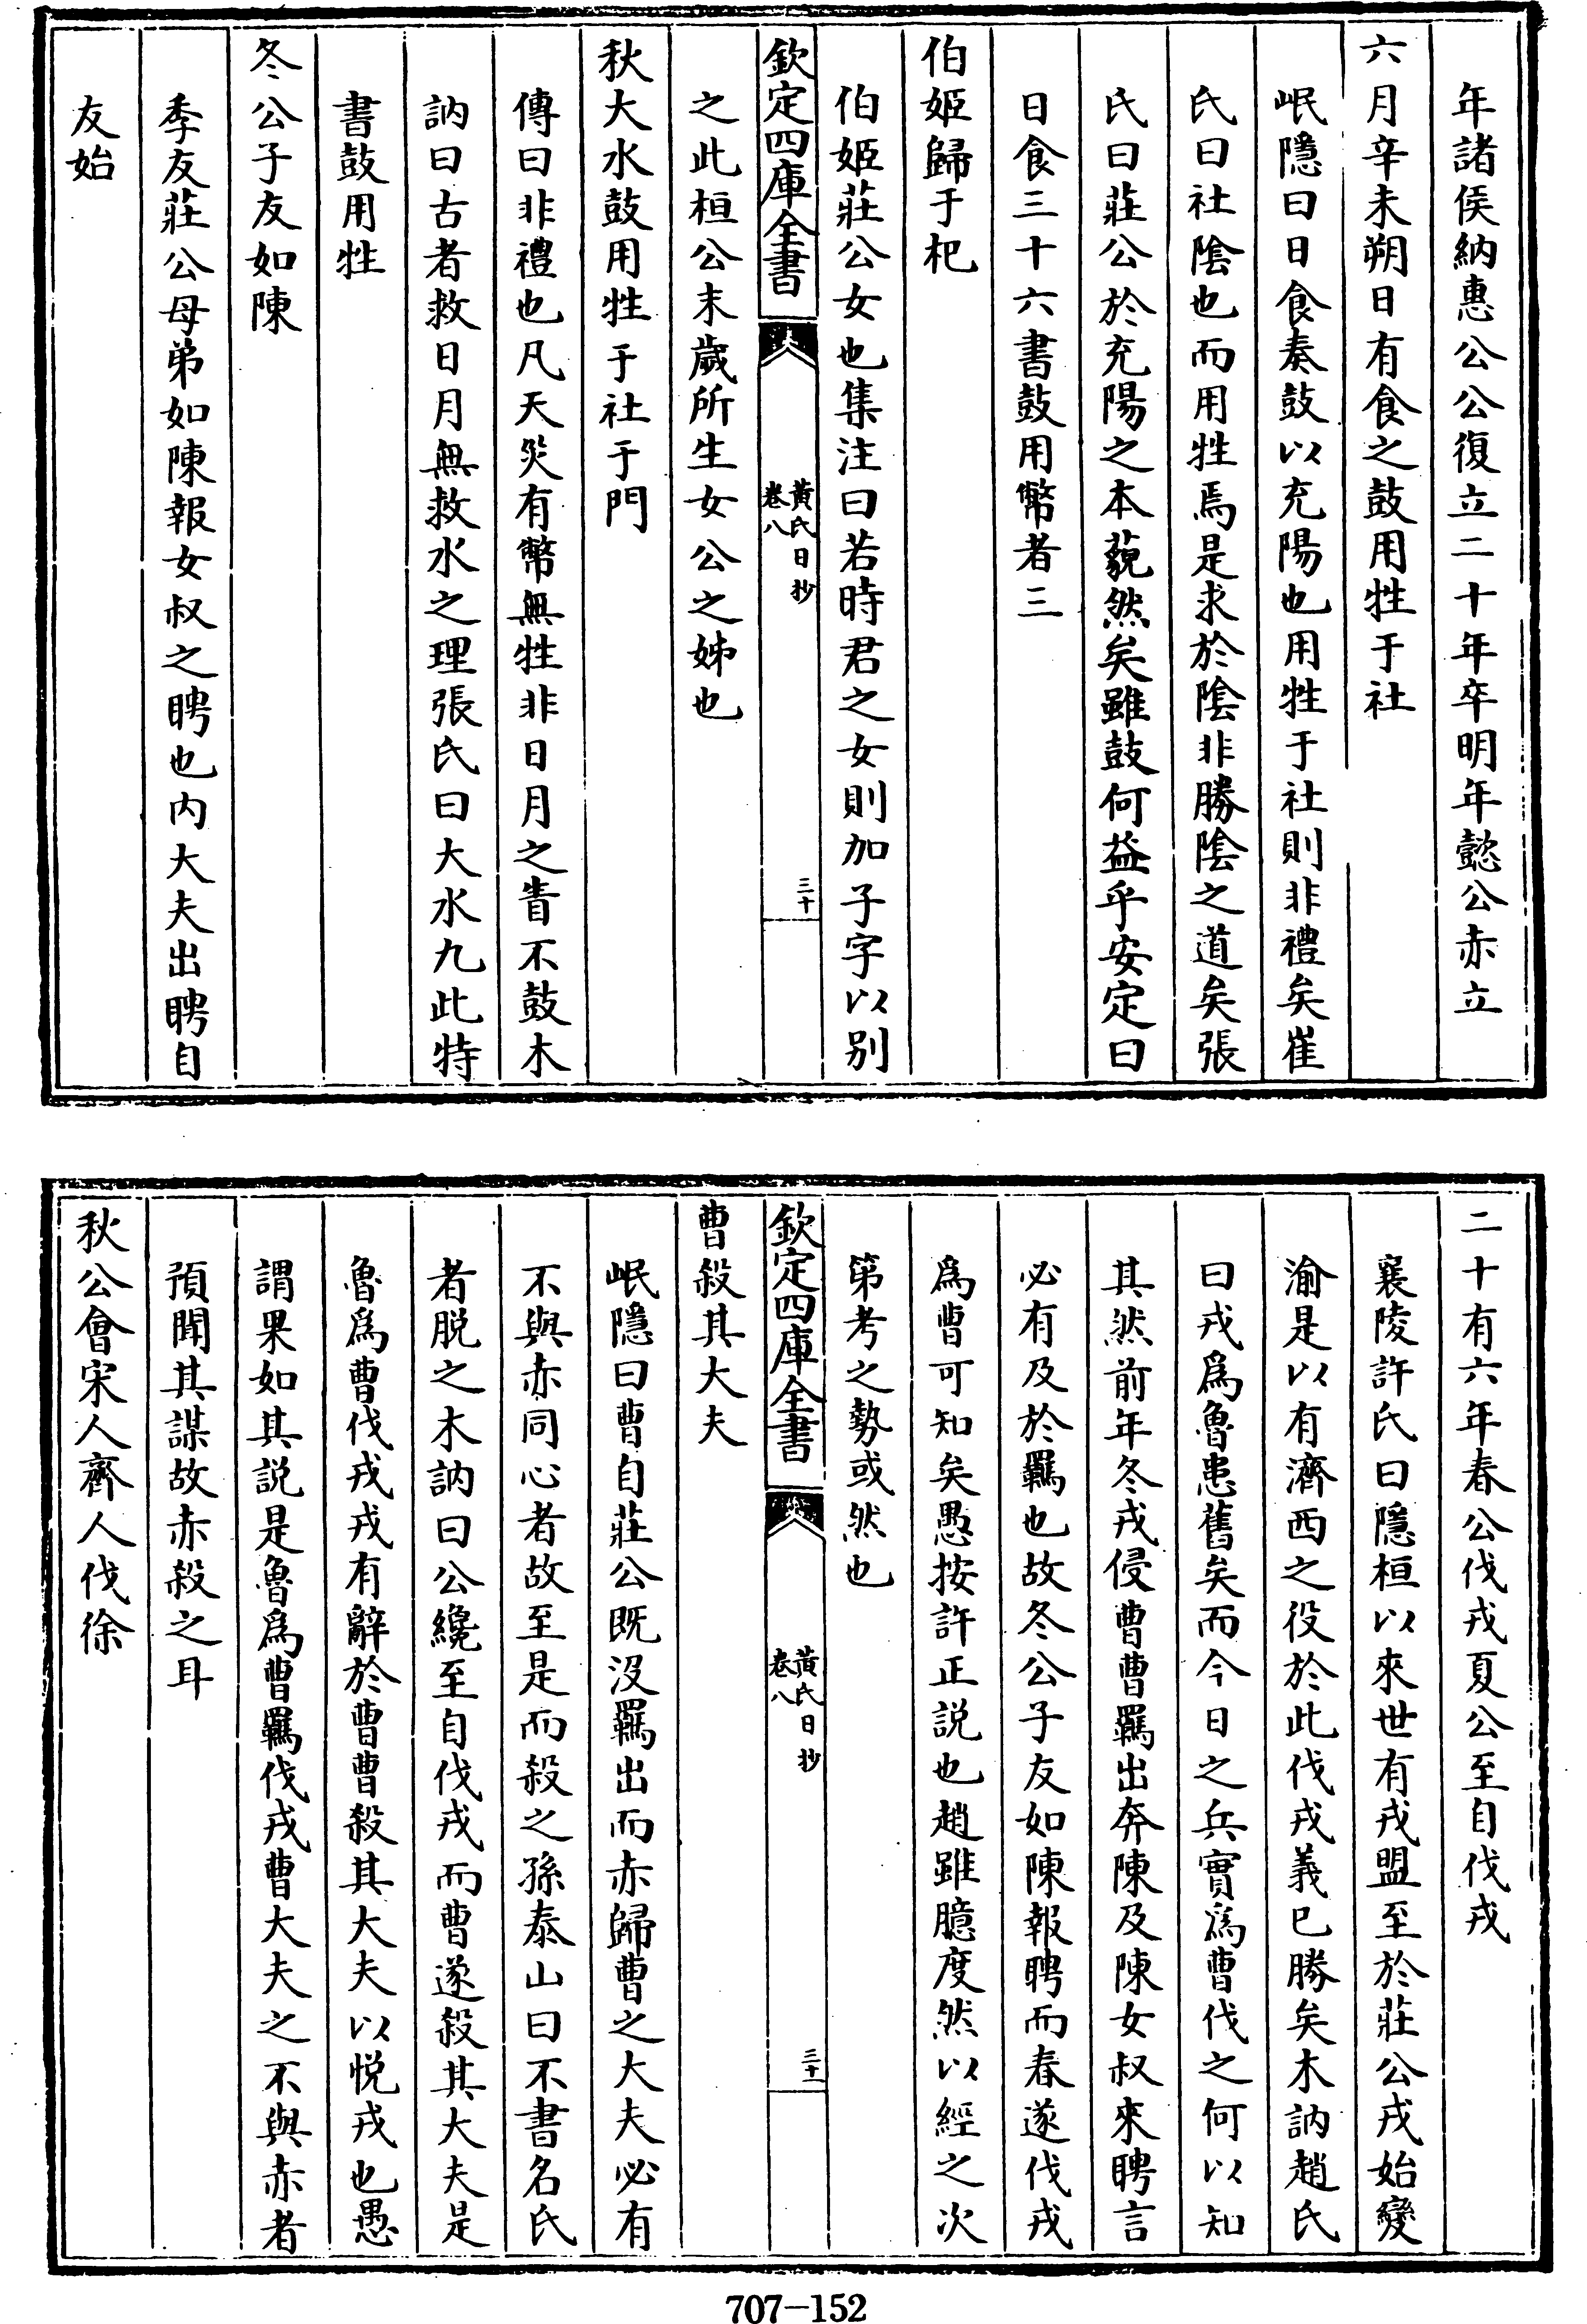 年諸侯納惠公公復立二十年卒明年懿公赤立
六月辛未朔日有食之鼓用牲于社
岷隱曰日食奏鼓以充陽也用牲于社則非禮矣崔
氏曰社陰也而用牲焉是求於陰非勝陰之道矣張
氏曰莊公於充陽之本藐然矣雖鼓何益乎安定曰
日食三十六書鼓用幣者三
伯姬歸于杞
伯姬莊公女也集注曰若時君之女則加子字以別
欽定四庫全書
黃氏日抄
卷八
三十
之此桓公末歲所生女公之姊也
秋大水鼓用牲于社于門
傳曰非禮也凡天災有幣無牲非日月之眚不鼓木
訥曰古者救日月無救水之理張氏曰大水九此特
書鼓用牲
冬公子友如陳
季友莊公母弟如陳報女叔之聘也內大夫出聘自
友始
二十有六年春公伐戎夏公至自伐戎
襄陵許氏曰隱桓以來世有戎盟至於莊公戎始變
渝是以有濟西之役於此伐戎義已勝矣木訥趙氏
曰戎爲魯患舊矣而今日之兵實爲曹伐之何以知
其然前年冬戎侵曹曹羈出奔陳及陳女叔來聘言
必有及於羈也故冬公子友如陳報聘而春遂伐戎
爲曹可知矣愚按許正說也趙雖臆度然以經之次
第考之勢或然也
欽定四庫全書
黃氏日抄
卷八
三十一
曹殺其大夫
岷隱曰曹自莊公既沒羈出而赤歸曹之大夫必有
不與赤同心者故至是而殺之孫泰山曰不書名氏
者脫之木訥曰公纔至自伐戎而曹遂殺其大夫是
魯爲曹伐戎戎有辭於曹曹殺其大夫以悅戎也愚
謂果如其說是魯爲曹羈伐戎曹大夫之不與赤者
預聞其謀故赤殺之耳
秋公會宋人齊人伐徐
707-152